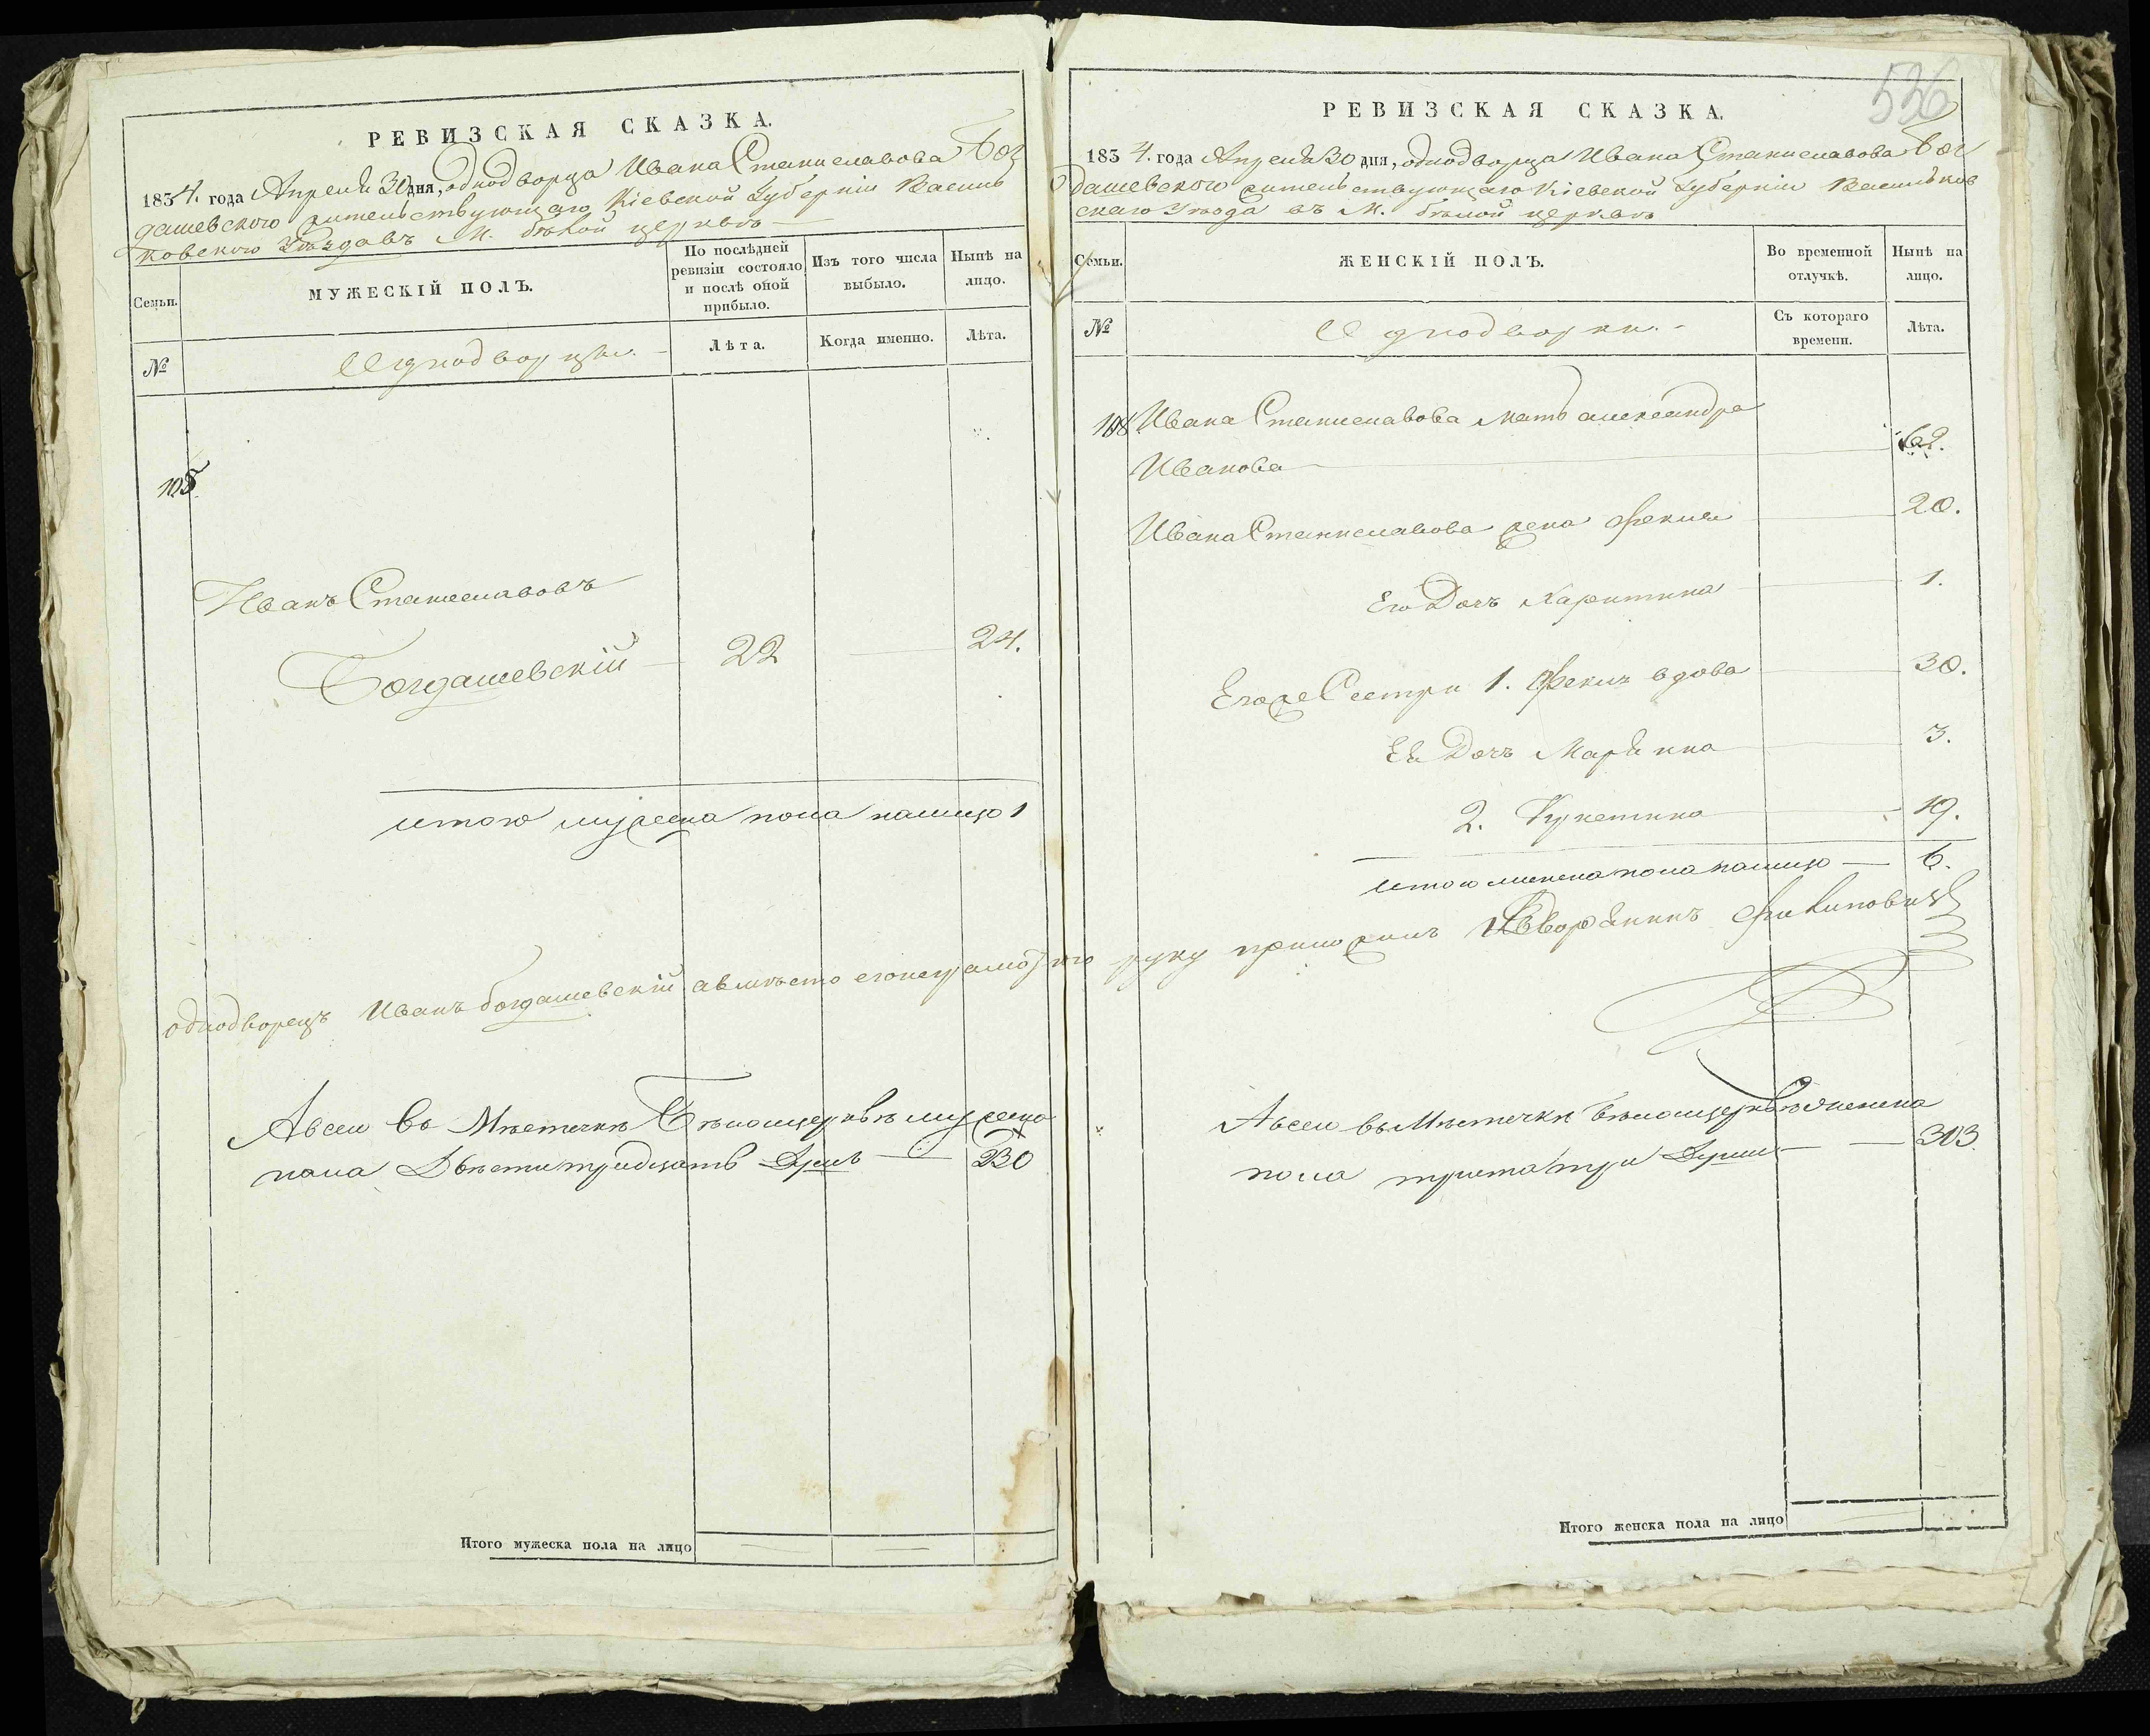 РЕВИЗСКАЯ СКАЗКА.
1834. года Апреля 30 дня, однодворца Ивана Станиславова Бог
дашевского жительствующаго Кіевской Губерніи Василь
ковского Уезда въ М. белой церкви
Семьи.
МУЖЕСКІЙ ПОЛЪ.
По послѣдней ревизіи состояло и послѣ оной прибыло.
Изъ того числа выбыло.
Нынѣ на лицо.
№
Однодворцы.
Лѣта.
Когда именно.
Лѣта.
108
Иванъ Станиславовъ
Богдашевскій 22 24.
итого мужеска пола налицо 1
однодворецъ Иванъ богдашевскій авместо его неграмотного руку приложилъ Дворянинъ
Авсеи во Местечке Белоцеркве мужеска
пола Двести тридцать Душъ 230
Итого мужеска пола на лицо
536
РЕВИЗСКАЯ СКАЗКА.
1834. года Апреля 30 дня, однодворца Ивана Станиславова Бог
дашевского жительствующаго Кіевской Губерніи Васильков
скаго Уезда въ М. белой церкви
Семьи.
ЖЕНСКІЙ ПОЛЪ.
Во временной отлучкѣ.
Нынѣ на лицо.
№
Однодворки.
Съ котораго времени.
Лѣта.
108 Ивана Станиславова мать александра
Иванова 62.
Ивана Станиславова жена Фекла 20.
Его Дочъ Харитина 1.
Егоже Сестри 1. Фекла вдова 30.
Ея Дочъ Марянна 3.
2. 19.
итого женска пола налицо 6.
Авсеи въ Местечке Белоцеркве женска
пола триста три Души 303
Итого женска пола на лицо